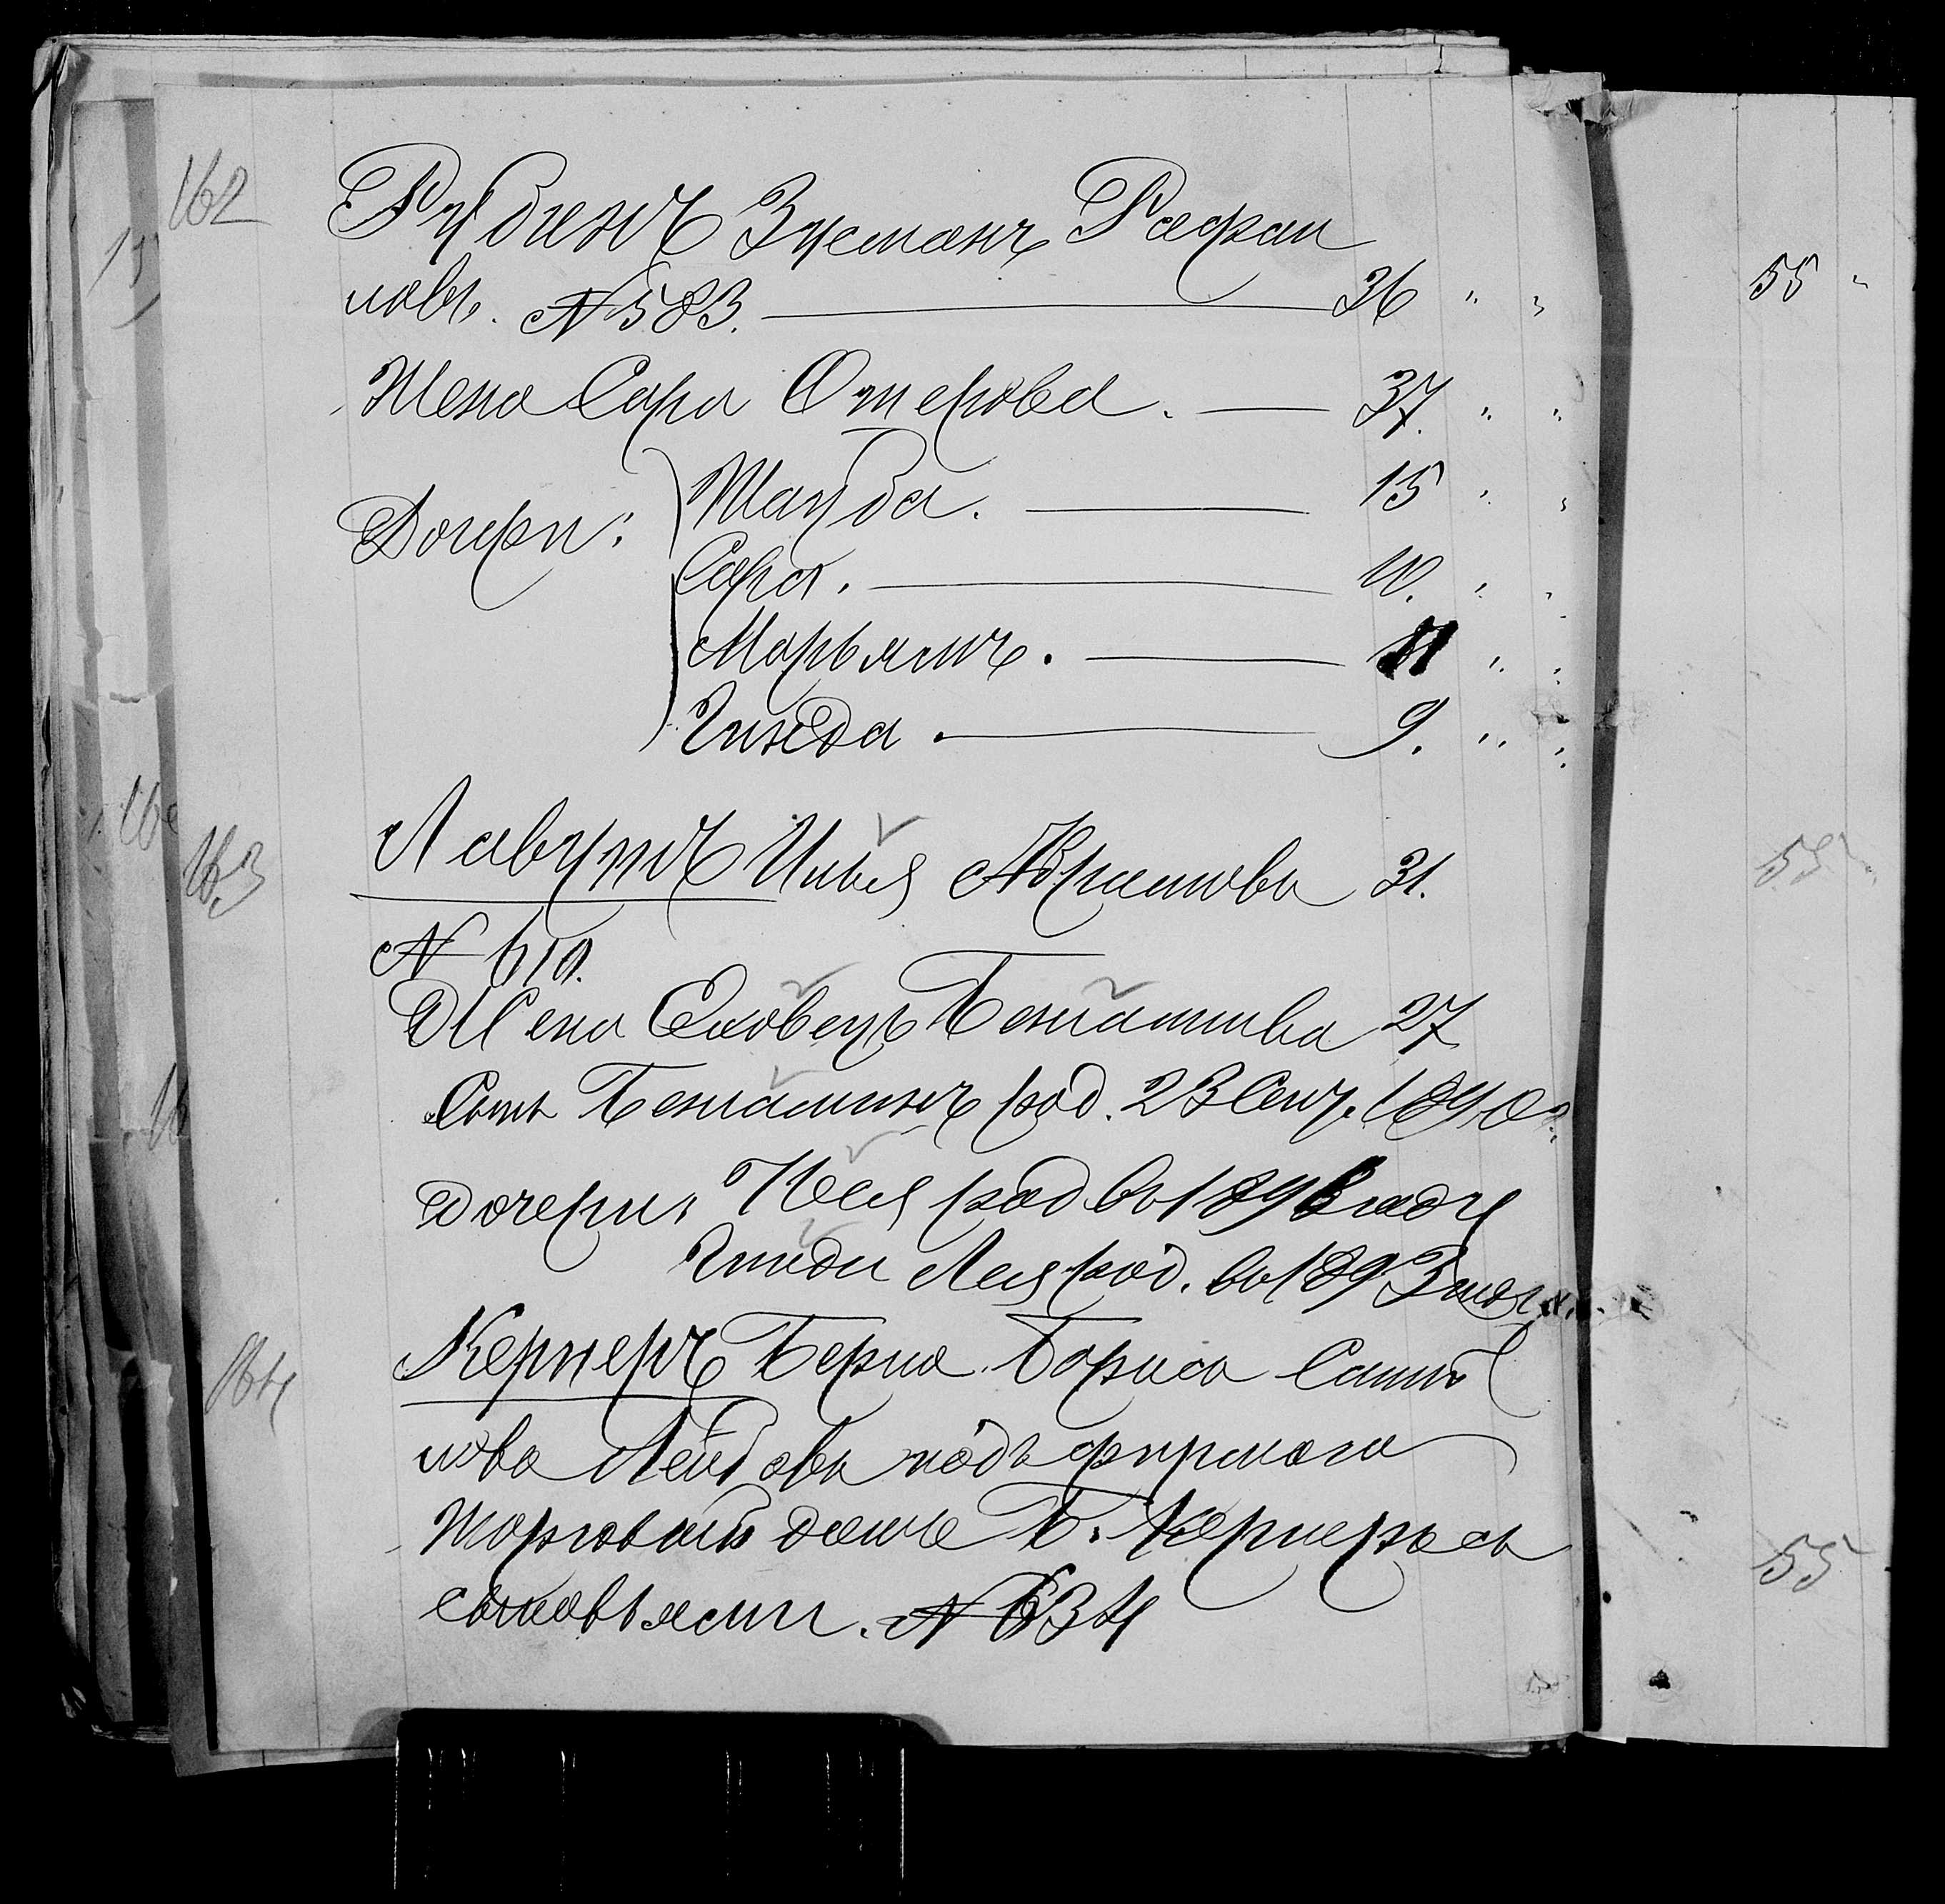 162
Рубинъ Зусманъ Рафаи
ловъ. № 583. 36 " " 55 "
Жена Сара Отерова. 37. " "
Дочери: Тауба. 15 " "
Сара. 10. " "
Марьямъ. 11 " "
Гинда. 9. " "
163 Лавутъ Илья Абрамовъ 31. 55
№ 610.
Жена Беніаминова 27
Сынъ Беніаминъ род. 23 Сент. 1890 г.
Дочери: род въ 1896 году
Гинда Лея род. въ 1893 году.
164 Кернеръ Берка Борисъ Самой
лова Лейбовъ подъ фирмою
Торговый домъ Б. Кернеръ съ 55
сыновьями. № 634